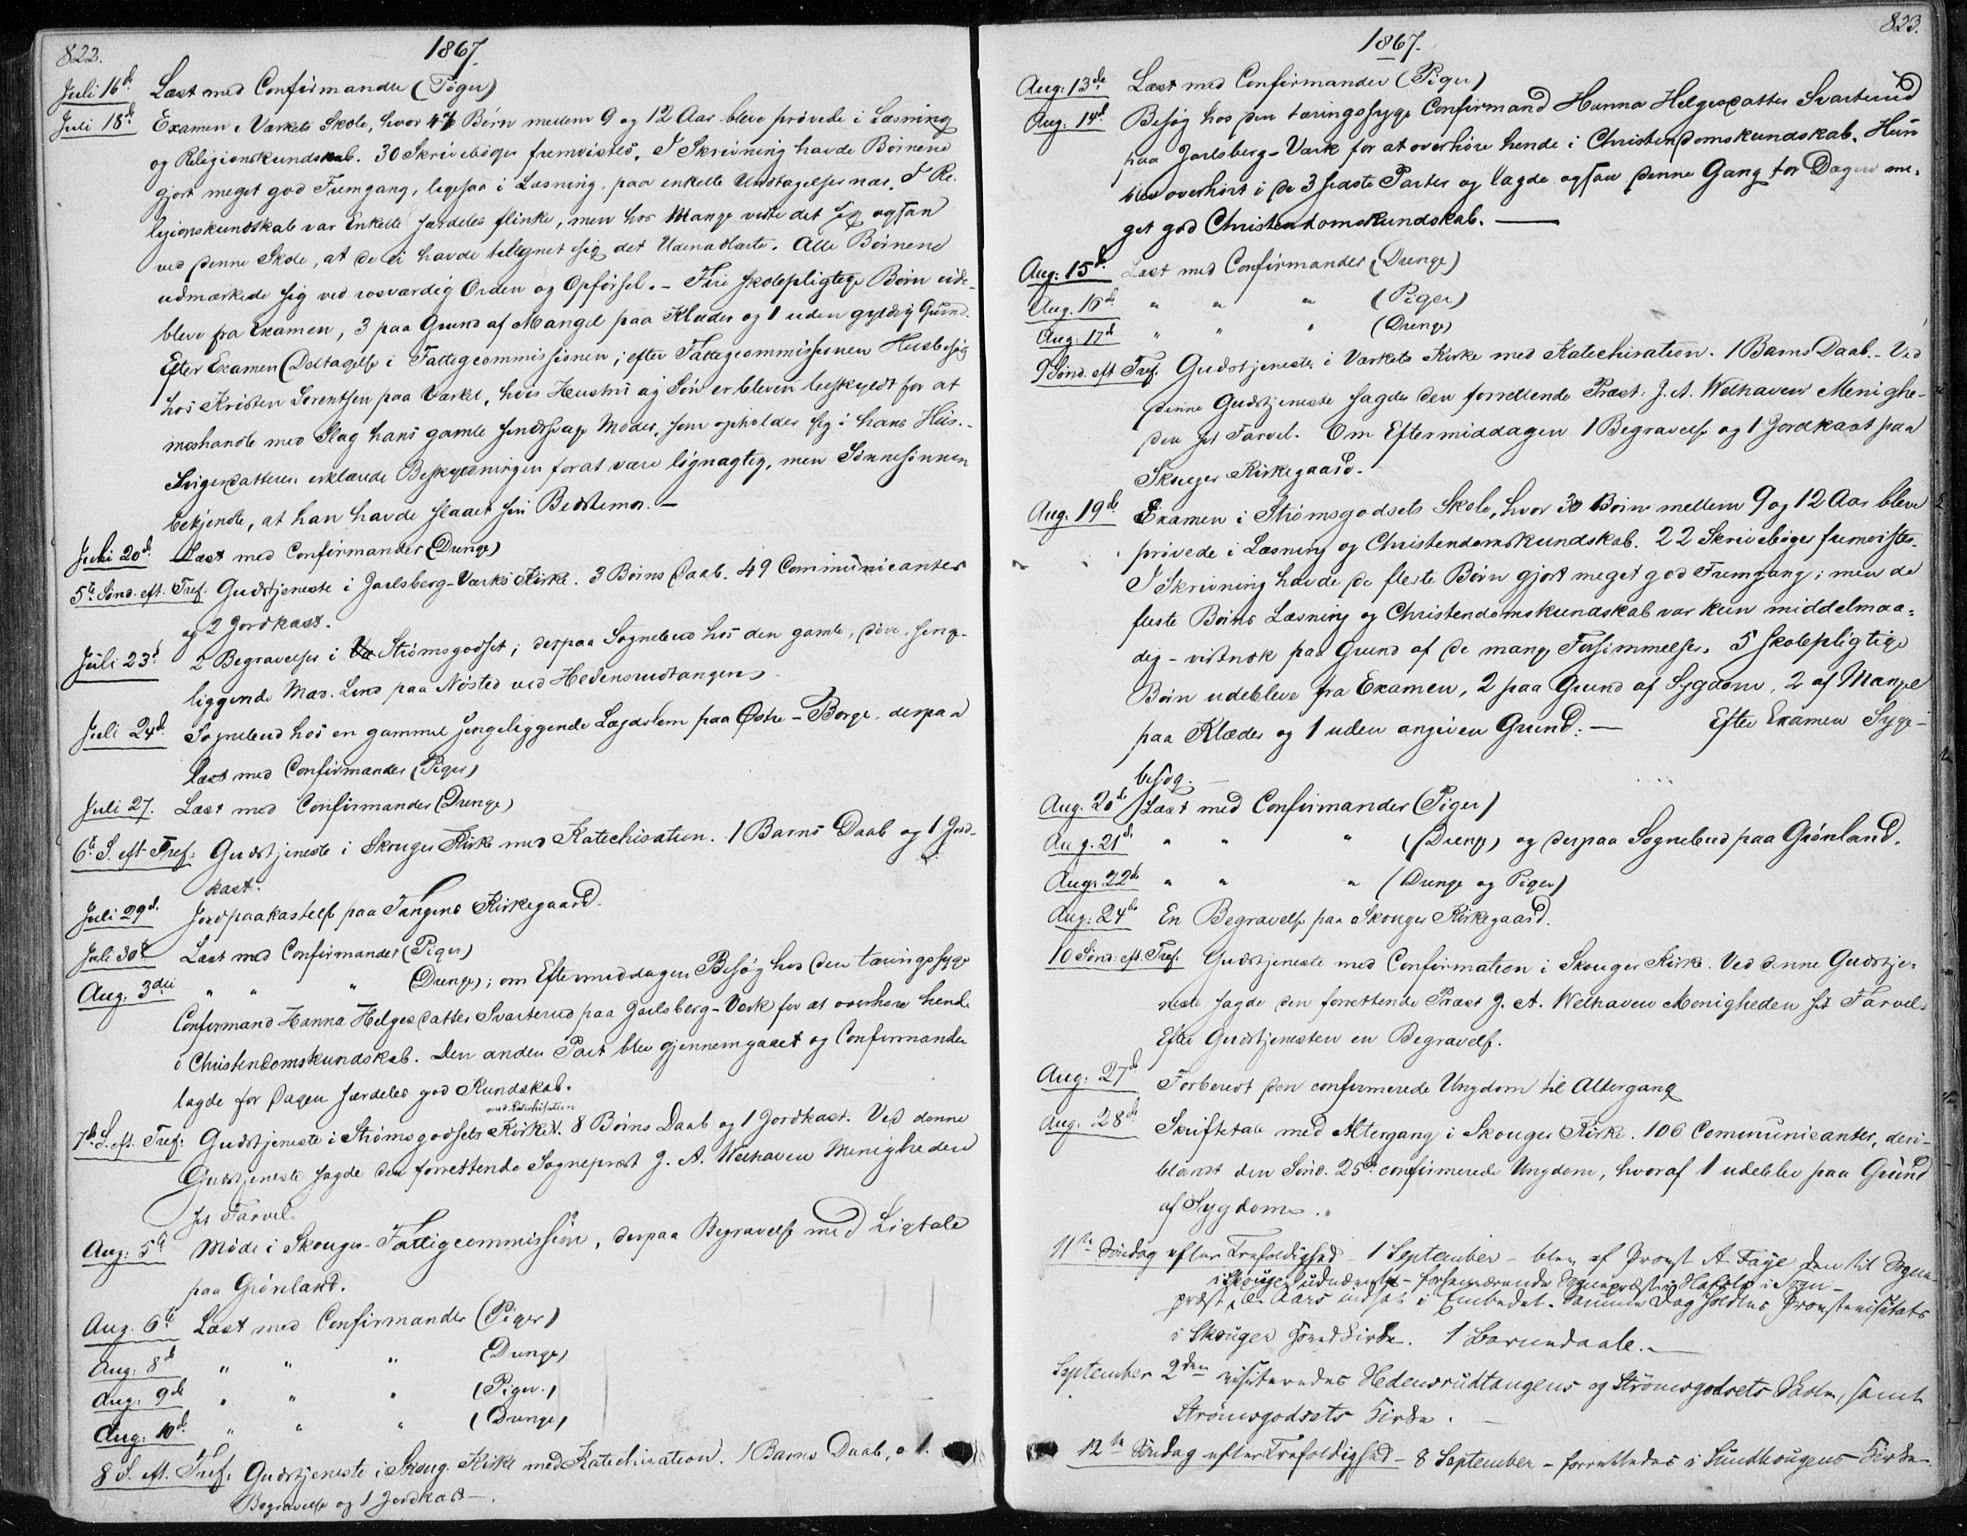 822.
1867.
Juli 16d. Læst med Confirmander (Piger)
Juli 18d. Examen i Værkets Skole, hvor 47 Børn mellem 9 og 12 Aar bleve prøvede i Læsning
og Religionskundskab. 30 Skrivebøger fremvistes. I Skrivning havde Børnene
gjort meget god Fremgang, ligesaa i Læsning, paa enkelte Undtagelser nær. I Re-
ligionskundskab var Enkelte særdeles flinke, men hos Mange viste det sig ogsaa
ved denne Skole, at de ei havde tilegnet sig det Udenadlærte. Alle Børnene
udmærkede sig ved rosværdig Orden og Opførsel. - Fire skolepligtige Børn ude-
bleve fra Examen, 3 paa Grund af Mangel paa Klæder og 1 uden gyldig Grund.
Efter Examen Deltagelse i Fattigcommissionen; efter Fattigcommissionen Husbesøg
hos Kristen Sørentsen paa Værket, hvis Hustru og Søn er bleven beskyldt for at
meshandle med Slag hans gamle sindssvage Moder, som opholder sig i hans Huus.
Svigerdatteren erklærede Beskyldningen forat være løgnagtig, men Sønnesønnen
bekjendte, at han havde slaaet sin Bedstemor. -
Juli 20d. Læst med Confirmander (Drenge)
5te Sønd. eft. Tref. Gudstjeneste i Jarlsberg-Værks Kirke. 3 Børns Daab. 49 Communicanter
og 2 Jordkast.
Juli 23d 2 Begravelser i Strømsgodset; derpaa Sognebud hos den gamle, døve, senge-
liggende Mad. Lind paa Nøsted ved Hedensrudtangen.
Juli 24d. Sognebud hos en gammel sengeliggende Lægdslem paa Østre-Borge. derpaa
læst med Confirmander (Piger)
Juli 27. Læst med Confirmander (Drenge)
6te S. eft. Tref: Gudstjeneste i Skouger Kirke med Katechisation. 1 Barns Daab og 1 Jord-
kast.
Juli 29d. Jordpaakastelse paa Tangens Kirkegaard.
Juli 30d Læst med Confirmander (Piger)
Aug. 3die " " " (Drenge); om Eftermiddagen Besøg hos den tæringssyge
Confirmand Hanna Helgesdatter Svarterud paa Jarlsberg-Værk for at overhøre hende
i Christendomskundskab. Den anden Part blev gjennemgaaet og Confirmanden
lagde for Dagen særdeles god Kundskab.
med Katechisation
7de S. eft. Tref: Gudstjeneste i Strømsgodsets Kirke v. 8 Børns Daab og 1 Jordkast. Ved denne
Gudstjeneste sagde den forrettende Sognepræst J. A. Welhaven Menigheden
sit Farvel.
Aug: 5te Møde i Skouger-Fattigcommission, derpaa Begravelse med Ligtale
paa Grønland.
Aug. 6te Læst med Confirmander (Piger)
Aug: 8de " " " (Drenge)
Aug: 9de " " " (Piger.)
Aug: 10de " " " (Drenge)
8 S. eft. Tref: Gudstjeneste i Skoug. Kirke med Katechisation. 1 Barns Daab, 1.
Begravelse og 1 Jordkast -.
823.
1867.
Aug: 13de Læst med Confirmander (Piger)
Aug. 14d Besøg hos den tæringssyge Confirmand Hanna Helgesdatter Svarterud
paa Jarlsberg-Værk for at overhøre hende i Christendomskundskab. Hun
blev overhørt i de 3 sidste Parter og lagde ogsaa denne Gang for Dagen me-
get god Christendomskundskab. -
Aug: 15d. Læst med Confirmander (Drenge)
Aug. 16de " " " (Piger)
Aug: 17d " " " (Drenge)
9 Sønd. eft Tref. Gudstjeneste i Værkets Kirke med Katechisation. 1 Barns Daab. - Ved
denne Gudstjeneste sagde den forrettende Præst: J. A. Welhaven Menighe-
den sit Farvel. Om Eftermiddagen 1 Begravelse og 1 Jordkast paa
Skouger Kirkegaard.
Aug. 19de Examen i Strømsgodsets Skole, hvor 30 Børn mellem 9 og 12 Aar bleve
prøvede i Læsning og Christendomskundskab. 22 Skrivebøger fremvistes.
I Skrivning havde de fleste Børn gjort meget god Fremgang; men de
fleste Børns Læsning og Christendomskundskab var kun middelmaa-
dig - vistnok paa Grund af de mange Forsømmelser. 5 skolepligtige
Børn udebleve fra Examen, 2 paa Grund af Sygdom, 2 af Mangel
paa Klæder og 1 uden angiven Grund. - Efter Examen Syge-
besøg. -
Aug. 20de Læst med Confirmander (Piger)
Aug. 21de " " " (Drenge) og derpaa Sognebud paa Grønland.
Aug. 22de " " " (Drenge og Piger)
Aug: 24de En Begravelse paa Skouger Kirkegaard.
10 Sønd: eft. Tref: Gudstjeneste med Confirmation i Skouger Kirke. Ved denne Gudstje-
neste sagde den forrettende Præst J. A. Welhaven Menigheden sit Farvel.
Efter Gudstjenesten en Begravelse.
Aug: 27de Forberedt den confirmerede Ungdom til Altergang
Aug. 28de Skriftetale med Altergang i Skouger Kirke. 106 Communicanter, deri-
blandt den Sønd. 25de confirmerede Ungdom, hvoraf 1 udeblev paa Grund
af Sygdom.
11te Søndag efter Trefoldighed - 1 September - blev af Provst A. Faye den til Sogne-
i Skouger udnævnte - forhenværende Sognepræst i Hafslo i Sogn -
præst, Aars indsat i Embedet. Samme Dag holdtes Provstevisitats
i Skouger Hovedkirke. 1 Barnedaab. -
September 2den visiteredes Hedensrudtangens og Strømsgodsets Skoler, samt
Strømsgodsets Kirke. -
12te Søndag efter Trefoldighed - 8 September - forrettedes i Sundhougens Kirke.